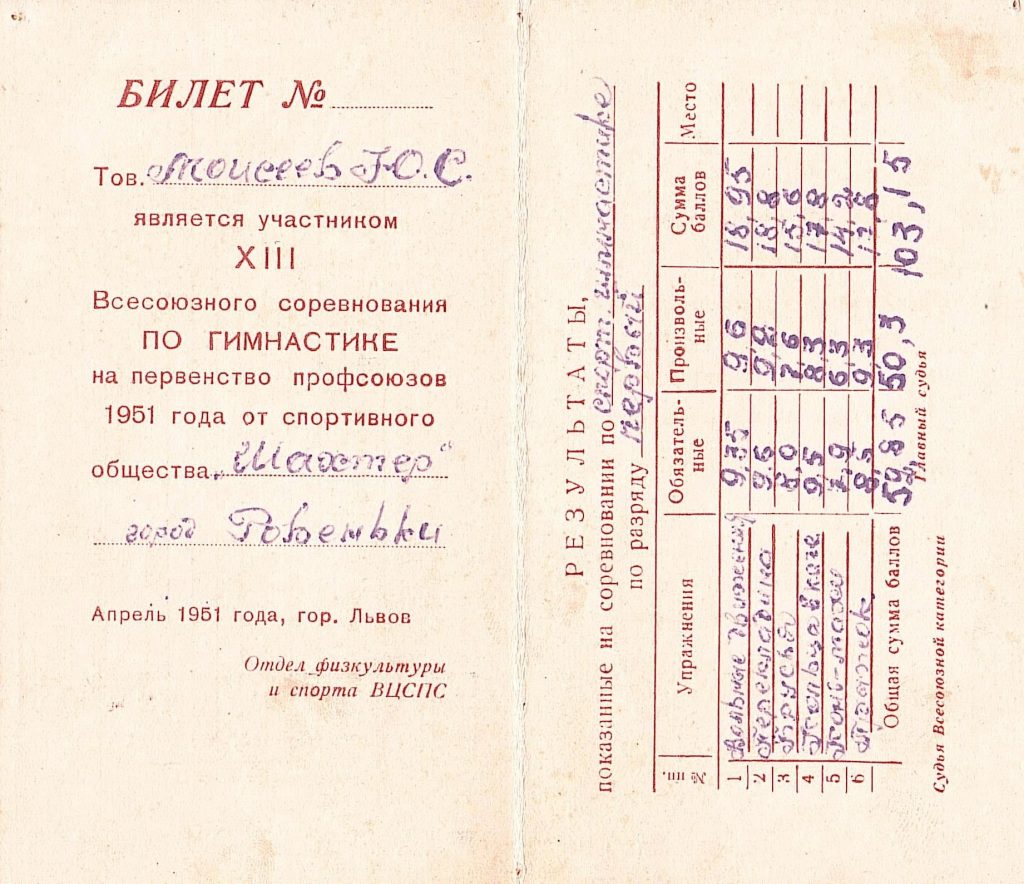 БИЛЕТ №
Тов. Моисеев Ю.С.
является участником
XIII
Всесоюзного соревнования
ПО ГИМНАСТИКЕ
на первенство профсоюзов
1951 года от спортивного
общества „Шахтер“
город Ровеньки
Апрель 1951 года, гор. Львов
Отдел физкультуры
и спорта ВЦСПС
РЕЗУЛЬТАТЫ,
показанные на соревновании по спорт. гимнастике
по разряду первый
№ пп. Упражнения Обязательные Произвольные Сумма баллов Место
1 Вольные движения 9,35 9,6 18,95
2 Перекладина 9,6 9,2 18,8
3 Брусья 8,0 7,6 15,6
4 Кольца в каче 9,5 8,3 17,8
5 Конь-махи 7,9 6,3 14,2
6 Прыжок 8,5 9,3 17,8
Общая сумма баллов 50,3 103,15
Главный судья
Судья Всесоюзной категории